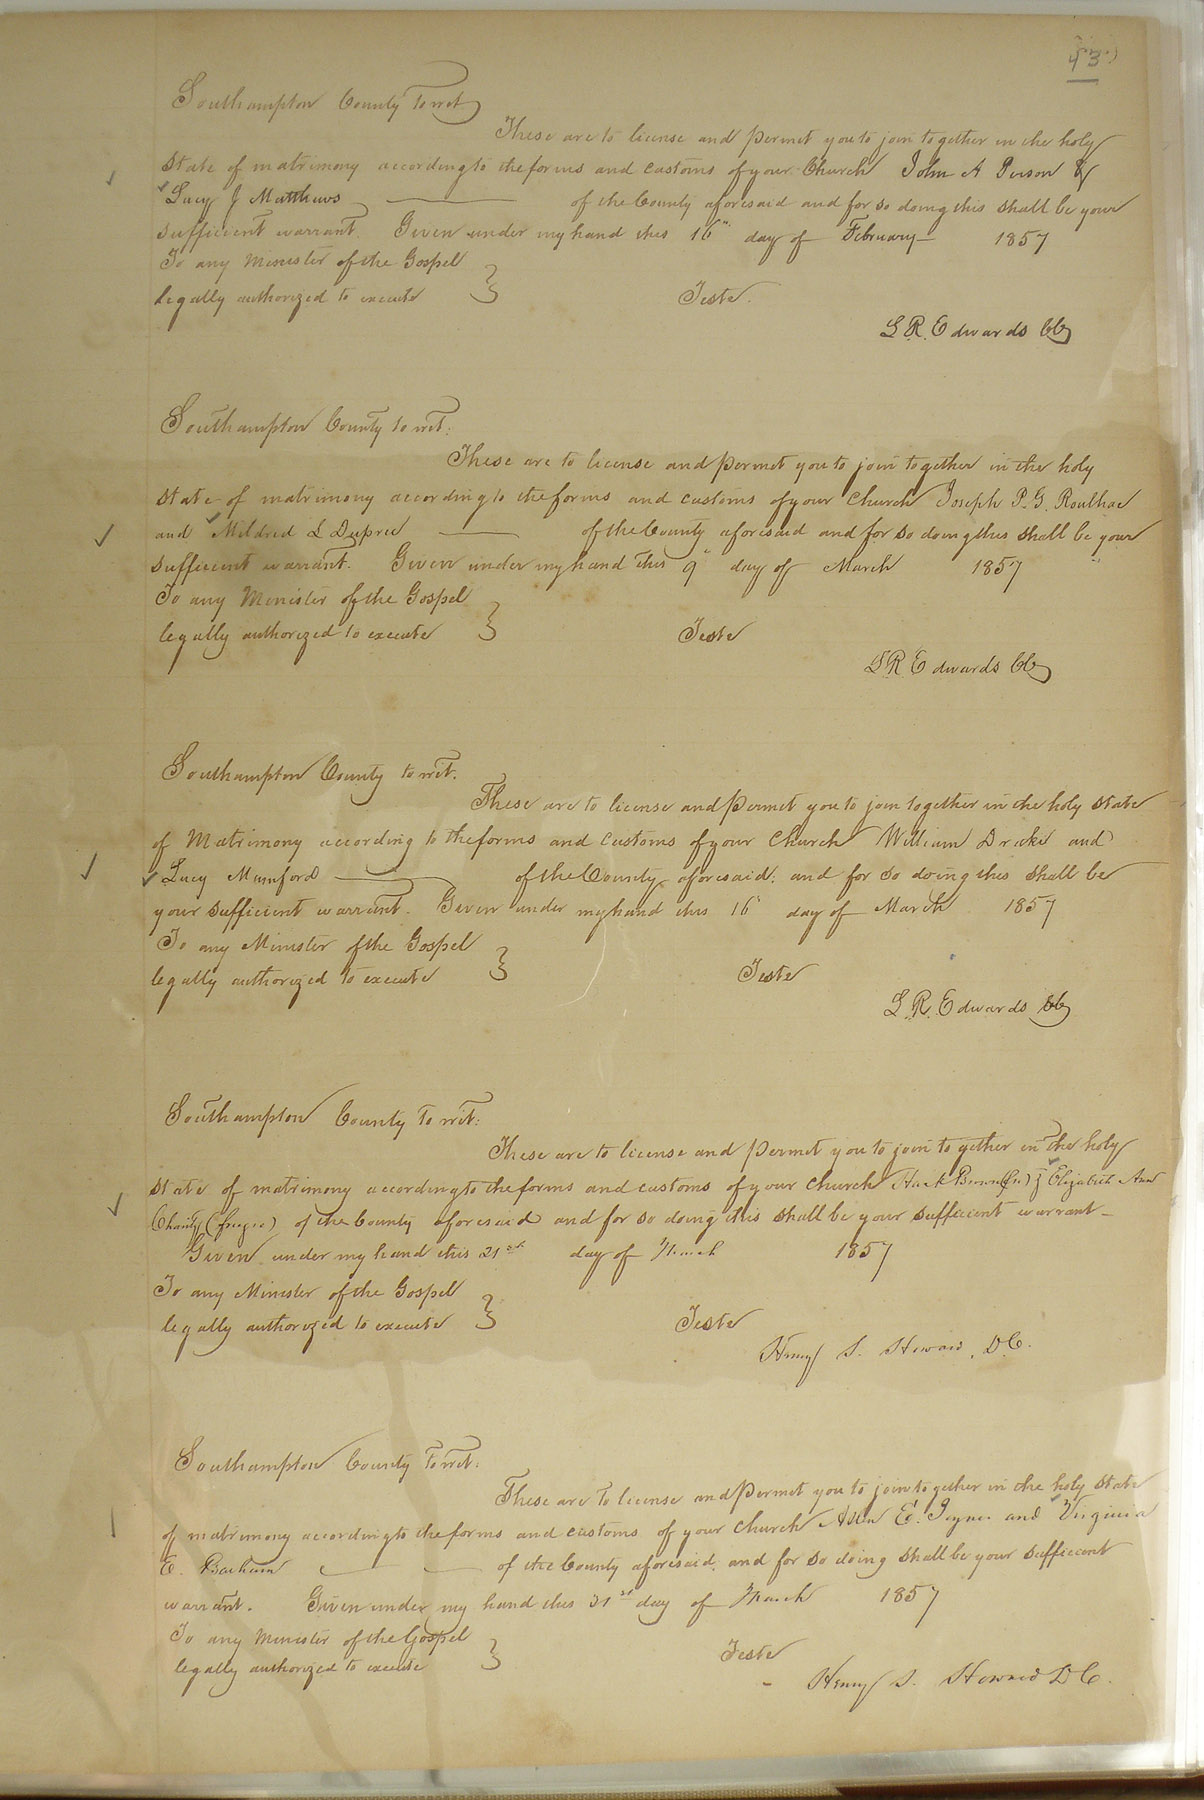 43
Southampton County to wit
These are to license and permit you to join together in the holy
state of matrimony according to the forms and customs of your Church John A Person &
Lucy J Matthews of the County aforesaid and for so doing this shall be your
sufficient warrant. Given under my hand this 16" day of February 1857
To any Minister of the Gospel
legally authorized to execute } Teste.
L R. Edwards CC
Southampton County to wit:
These are to license and permit you to join together in the holy
state of matrimony according to the forms and customs of your Church Joseph P. G. Roulhac
and Mildred L Dupree of the County aforesaid and for so doing this shall be your
sufficient warrant. Given under my hand this 9" day of March 1857
To any Minister of the Gospel
legally authorized to execute } Teste
L R Edwards CC
Southampton County to wit.
These are to license and permit you to join together in the holy state
of Matrimony according to the forms and customs of your Church William Drake and
Lucy Mumford of the County aforesaid: and for so doing this shall be
your sufficient warrant. Given under my hand this 16" day of March 1857
To any Minister of the Gospel
legally authorized to execute } Teste
L. R. Edwards CC
Southampton County to wit:
These are to license and permit you to join together in the holy
state of matrimony according to the forms and customs of your Church Brown & Elizabeth Ann
Charity of the County aforesaid and for so doing this shall be your sufficient warrant
Given under my hand this 21st day of March 1857
To any Minister of the Gospel
legally authorized to execute } Teste
Henry S. Howard, D C.
Southampton County to wit:
These are to license and permit you to join together in the holy state
of matrimony according to the forms and customs of your Church E. Joyner and Virginia
E. Barham of the County aforesaid. and for so doing shall be your sufficient
warrant. Given under my hand this 21st day of March 1857
To any Minister of the Gospel
legally authorized to execute } Teste
Henry S. Howard D C.